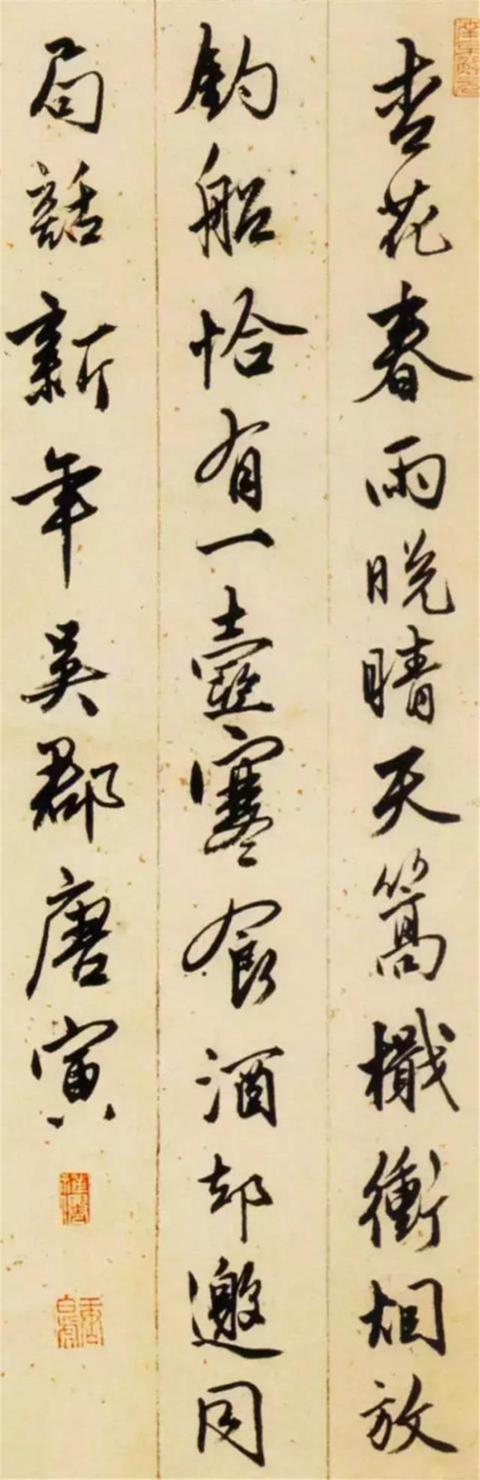 杏花春雨晚晴天篙檝衝烟放
釣船恰有一壺寒食酒却邀同
局話新年吳郡唐寅